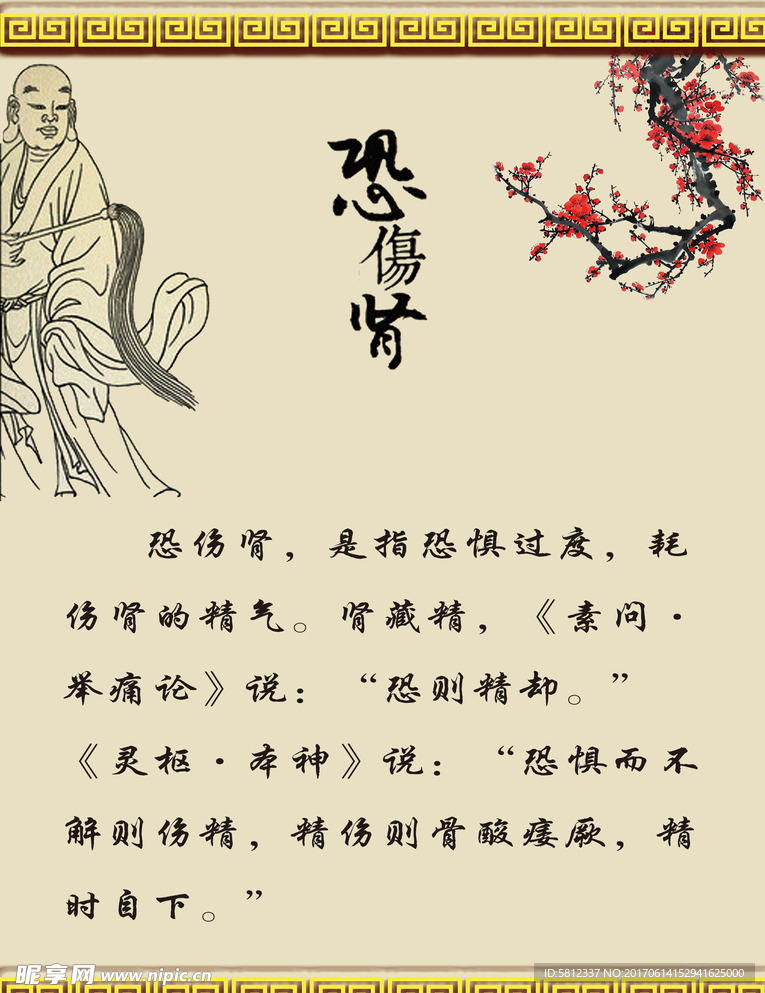 恐傷肾
恐伤肾，是指恐惧过度，耗
伤肾的精气。肾藏精，《素问·
举痛论》说：“恐则精却。”
《灵枢·本神》说：“恐惧而不
解则伤精，精伤则骨酸痿厥，精
时自下。”
昵享网 www.nipic.cn
ID:5812337 NO:20170614152941625000